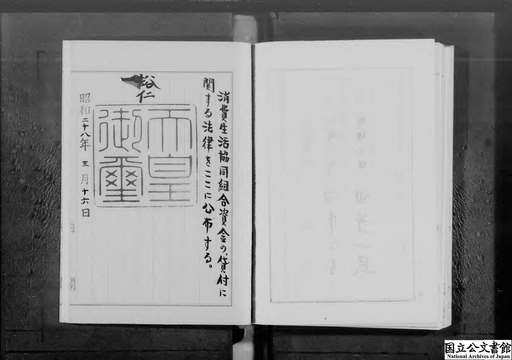 消費生活協同組合資金の貸付に
関する法律をここに公布する。
裕仁
天皇
御璽
昭和二十八年 三月十六日
国立公文書館
National Archives of Japan